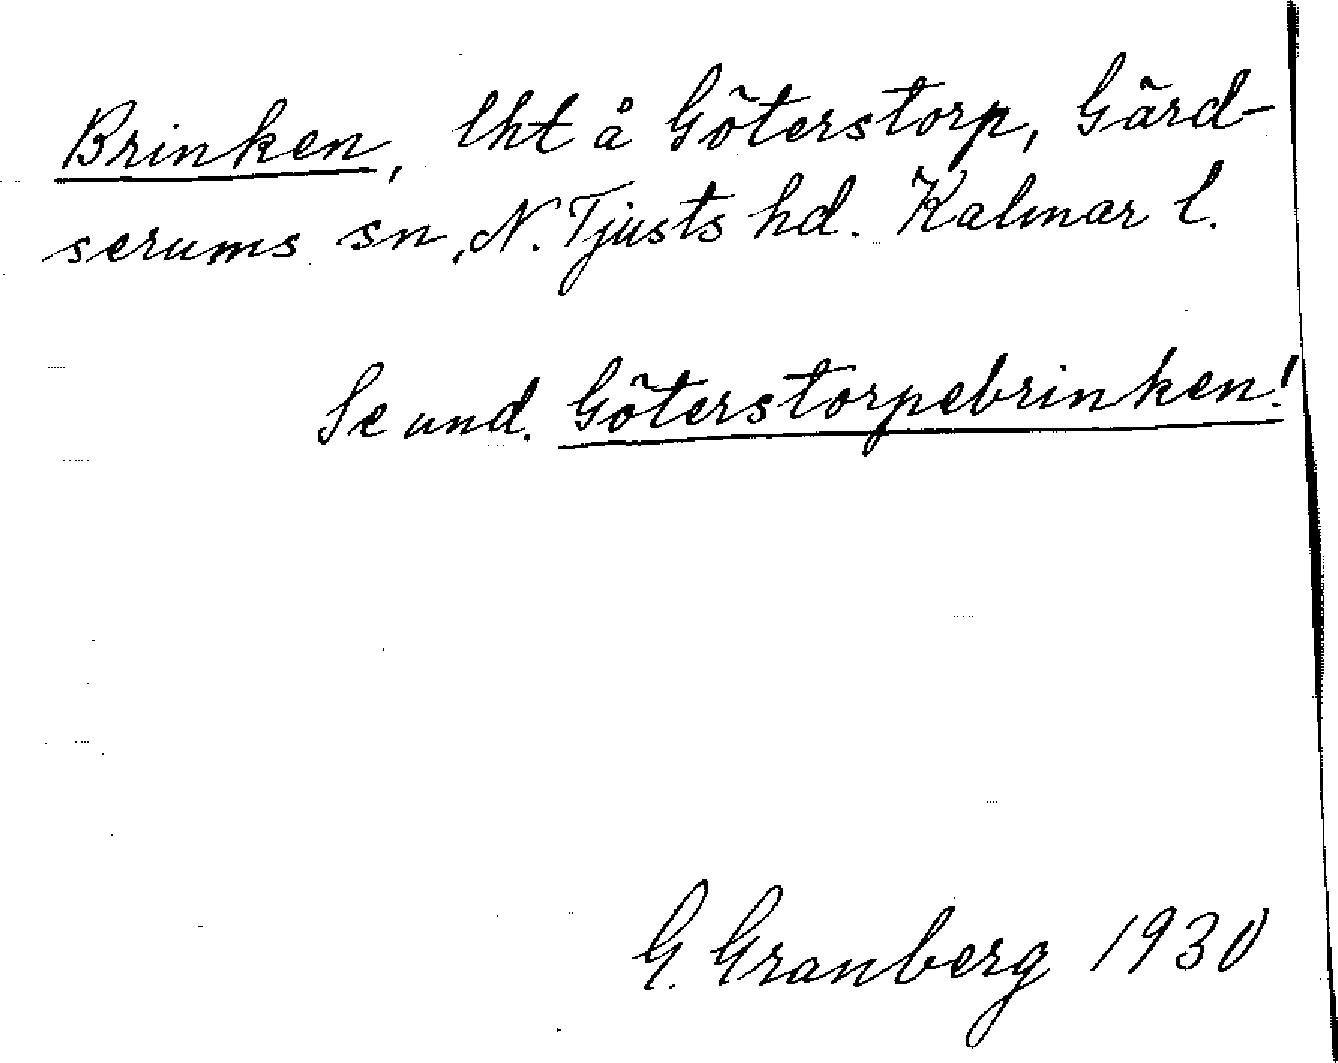 Brinken, lht å Göterstorp, Gärd-
serums sn, N. Tjusts hd. Kalmar l.
Se und. Göterstorpebrinken!
G. Granberg 1930